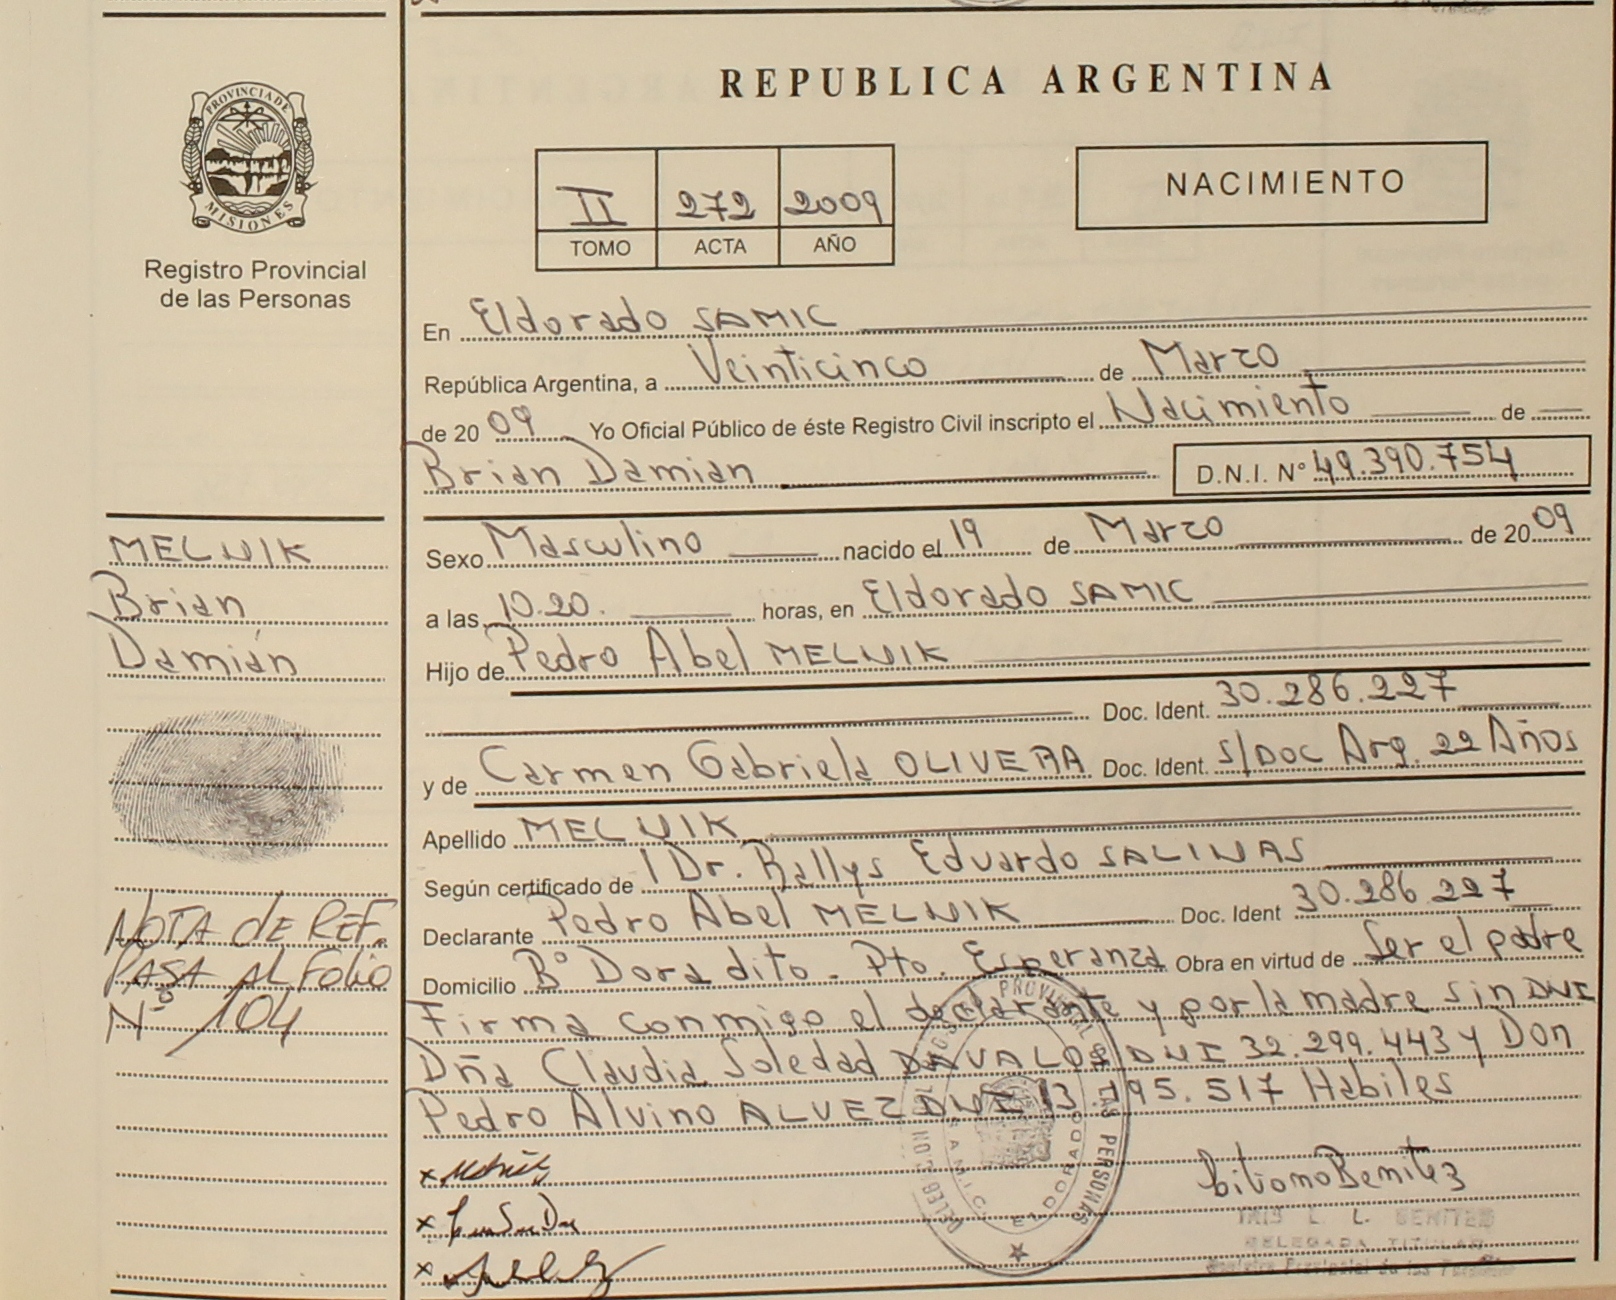 PROVINCIA DE
MISIONES
Registro Provincial
de las Personas
REPUBLICA ARGENTINA
II 272 2009
TOMO ACTA AÑO
NACIMIENTO
En Eldorado SAMIC
República Argentina, a Veinticinco de Marzo
de 20 09 Yo Oficial Público de éste Registro Civil inscripto el Nacimiento de
Brian Damian D.N.I. N° 49.390.754
MELNIK
Brian
Damián
Sexo Masculino nacido el 19 de Marzo de 20 09
a las 10.20. horas, en Eldorado SAMIC
Hijo de Pedro Abel MELNIK
Doc. Ident. 30.286.227
y de Carmen Gabriela OLIVERA Doc. Ident. S/DOC Arg. 22 Años
Apellido MELNIK
Según certificado de Dr. Rallys Eduardo SALINAS
Declarante Pedro Abel MELNIK Doc. Ident 30.286.227
Domicilio B° Doradito - Pto. Esperanza Obra en virtud de Ser el padre
NOTA de REF.
PASA AL Folio
N° 104
Firma conmigo el declarante y por la madre sin DNI
Dña Claudia Soledad DAVALOS DNI 32.299.443 y Don
Pedro Alvino ALVEZ DNI 13.195.517 Habiles
PROVINCIAL DE LAS PERSONAS
S.A.M.I.C. ELDORADO
BENITEZ
DELEGADA TITULAR
Registro Provincial de las Personas